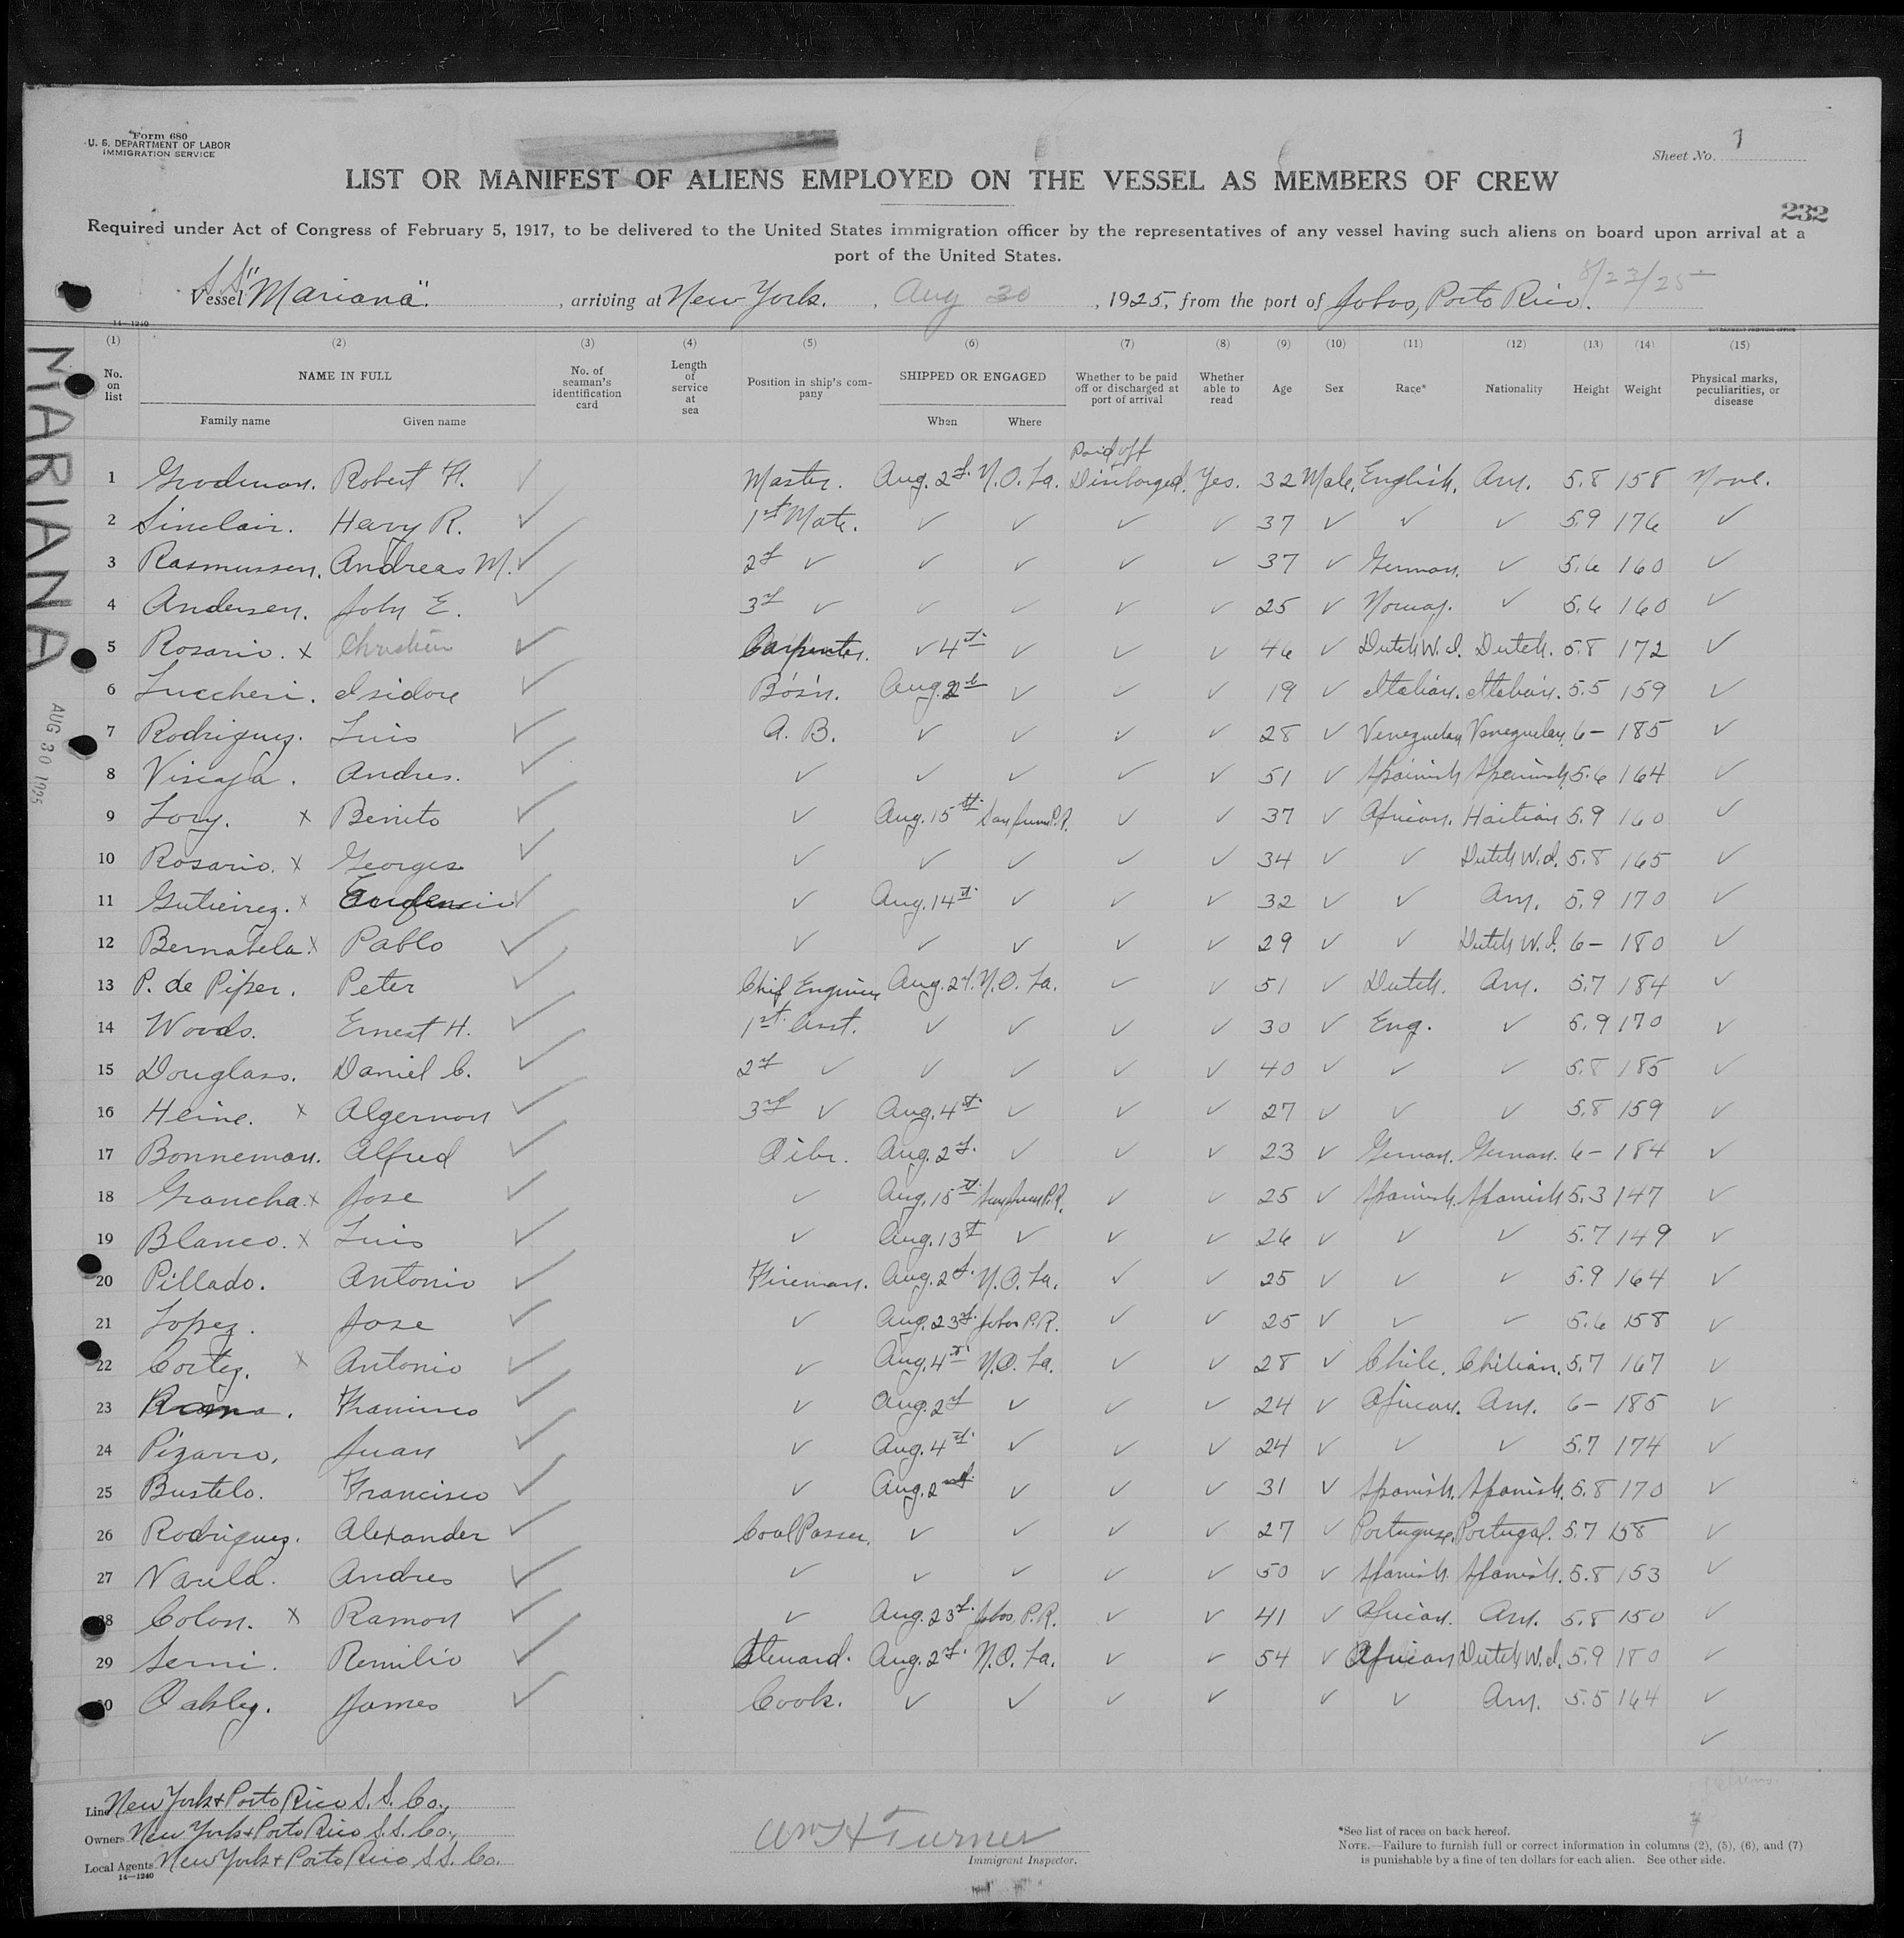 Form 680
U. S. DEPARTMENT OF LABOR
IMMIGRATION SERVICE
Sheet No. 1
LIST OR MANIFEST OF ALIENS EMPLOYED ON THE VESSEL AS MEMBERS OF CREW
232
Required under Act of Congress of February 5, 1917, to be delivered to the United States immigration officer by the representatives of any vessel having such aliens on board upon arrival at a
port of the United States.
8/23/25
Vessel S.S. "Mariana". , arriving at New York. , Aug 30 , 1925, from the port of Jobos, Porto Rico.
14—1240
MARIANA
AUG 30 1925
(1) (2) (3) (4) (5) (6) (7) (8) (9) (10) (11) (12) (13) (14) (15)
No. on list NAME IN FULL No. of seaman's identification card Length of service at sea Position in ship's company SHIPPED OR ENGAGED Whether to be paid off or discharged at port of arrival Whether able to read Age Sex Race* Nationality Height Weight Physical marks, peculiarities, or disease
Family name Given name When Where
Paid off
1 Goodman. Robert H. ✓ Master. Aug. 2d. N.O. La. Discharged. Yes. 32 Male. English. Am. 5.8 158 None.
2 Sinclair. Harry R. ✓ 1st Mate. ✓ ✓ ✓ ✓ 37 ✓ ✓ ✓ 5.9 176 ✓
3 Rasmussen. Andreas M. ✓ 2d ✓ ✓ ✓ ✓ ✓ 37 ✓ German. ✓ 5.6 160 ✓
4 Andersen. John E. ✓ 3d ✓ ✓ ✓ ✓ ✓ 25 ✓ Norway. ✓ 5.6 160 ✓
5 Rosario. x ✓ Carpenter. ✓ 4th ✓ ✓ ✓ 46 ✓ Dutch W.I. Dutch. 5.8 172 ✓
6 Luccheri. Isidore ✓ Bos'n. Aug. 2d ✓ ✓ ✓ 19 ✓ Italian. Italian. 5.5 159 ✓
7 Rodriguez. Luis ✓ A. B. ✓ ✓ ✓ ✓ 28 ✓ Venezuelan Venezuelan. 6- 185 ✓
8 Viscaya. Andres. ✓ ✓ ✓ ✓ ✓ ✓ 51 ✓ Spanish Spanish. 5.6 164 ✓
9 x Benito ✓ ✓ Aug. 15th. San Juan P.R. ✓ ✓ 37 ✓ African. Haitian 5.9 160 ✓
10 Rosario. x Georges ✓ ✓ ✓ ✓ ✓ ✓ 34 ✓ ✓ Dutch W.I. 5.8 165 ✓
11 Gutierrez. x ✓ ✓ Aug. 14th. ✓ ✓ ✓ 32 ✓ ✓ Am. 5.9 170 ✓
12 Bernabela. x Pablo ✓ ✓ ✓ ✓ ✓ ✓ 29 ✓ ✓ Dutch W.I. 6- 180 ✓
13 P. de Pijper. Peter ✓ Chief Engineer Aug. 2d. N.O. La. ✓ ✓ 51 ✓ Dutch. Am. 5.7 184 ✓
14 Woods. Ernest H. ✓ 1st. Asst. ✓ ✓ ✓ ✓ 30 ✓ Eng. ✓ 5.9 170 ✓
15 Douglass. Daniel C. ✓ 2d ✓ ✓ ✓ ✓ ✓ 40 ✓ ✓ ✓ 5.8 185 ✓
16 Heine. x Algernon ✓ 3rd ✓ Aug. 4th. ✓ ✓ ✓ 27 ✓ ✓ ✓ 5.8 159 ✓
17 Bonneman. Alfred ✓ Oiler. Aug. 2d. ✓ ✓ ✓ 23 ✓ German. German. 6- 184 ✓
18 x Jose ✓ ✓ Aug. 15th San Juan P.R. ✓ ✓ 25 ✓ Spanish. Spanish 5.3 147 ✓
19 Blanco. x Luis ✓ ✓ Aug. 13th ✓ ✓ ✓ 26 ✓ ✓ ✓ 5.7 149 ✓
20 Pillado. Antonio ✓ Fireman. Aug. 2d. N.O. La. ✓ ✓ 25 ✓ ✓ ✓ 5.9 164 ✓
21 Lopez. Jose ✓ ✓ Aug. 23d. Jobos P.R. ✓ ✓ 25 ✓ ✓ ✓ 5.6 158 ✓
22 Cortez. x Antonio ✓ ✓ Aug. 4th. N.O. La. ✓ ✓ 28 ✓ Chile. Chilian. 5.7 167 ✓
23 Francisco ✓ ✓ Aug. 2d ✓ ✓ ✓ 24 ✓ African. Am. 6- 185 ✓
24 Pizarro. Juan ✓ ✓ Aug. 4th. ✓ ✓ ✓ 24 ✓ ✓ ✓ 5.7 174 ✓
25 Bustelo. Francisco ✓ ✓ Aug. 2nd. ✓ ✓ ✓ 31 ✓ Spanish. Spanish. 5.8 170 ✓
26 Rodriguez. Alexander ✓ Coal Passer. ✓ ✓ ✓ ✓ 27 ✓ Portuguese. Portugal. 5.7 158 ✓
27 Varela. Andres ✓ ✓ ✓ ✓ ✓ ✓ 50 ✓ Spanish. Spanish. 5.8 153 ✓
28 Colon. x Ramon ✓ ✓ Aug. 23d. Jobos, P.R. ✓ ✓ 41 ✓ African. Am. 5.8 150 ✓
29 Remilio ✓ Steward. Aug. 2d. N.O. La. ✓ ✓ 54 ✓ African Dutch W.I. 5.9 180 ✓
30 Oakley. James ✓ Cook. ✓ ✓ ✓ ✓ ✓ ✓ Am. 5.5 164 ✓
✓
Line New York & Porto Rico S. S. Co.,
Owners New York & Porto Rico S.S. Co.,
Local Agents New York & Porto Rico S.S. Co.
14—1240
Wm H Turner
Immigrant Inspector.
*See list of races on back hereof.
NOTE.—Failure to furnish full or correct information in columns (2), (5), (6), and (7)
is punishable by a fine of ten dollars for each alien. See other side.